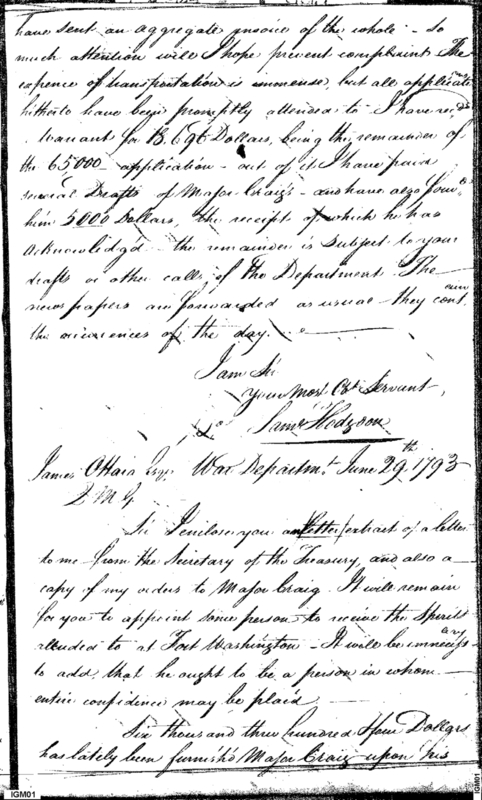 have sent an aggregate invoice of the whole - so
much attention will I hope prevent complaint The
expence of transportation is immense, but all applications
hitherto have been promptly attended to I have recd
Warrant for 13,696 Dollars, being the remainder of
the 65,000 application - out of it I have paid
several Drafts of Major Craig's - and have also forwd
him 5000 Dollars, the receipt of which he has
acknowledg'd - the remainder is subject to your
drafts or other calls of the Department The
news papers are forwarded as usual - they contain
the occurrences of the day.
I am Sir
Your Most Obt Servant,
Saml Hodgdon
James OHara Esqr. War Departmt June 29th 1793
Q M G
Sir I enclose you an letter extract of a letter
to me from the Secretary of the Treasury, and also a
copy of my orders to Major Craig. It will remain
for you to appoint some person to receive the Spirits
alluded to at Fort Washington - It will be unnecessary
to add, that he ought to be a person in whom
entire confidence may be plac'd
Six thousand three hundred & four Dollars
has lately been furnish'd Major Craig upon his
IGM01
IGM01